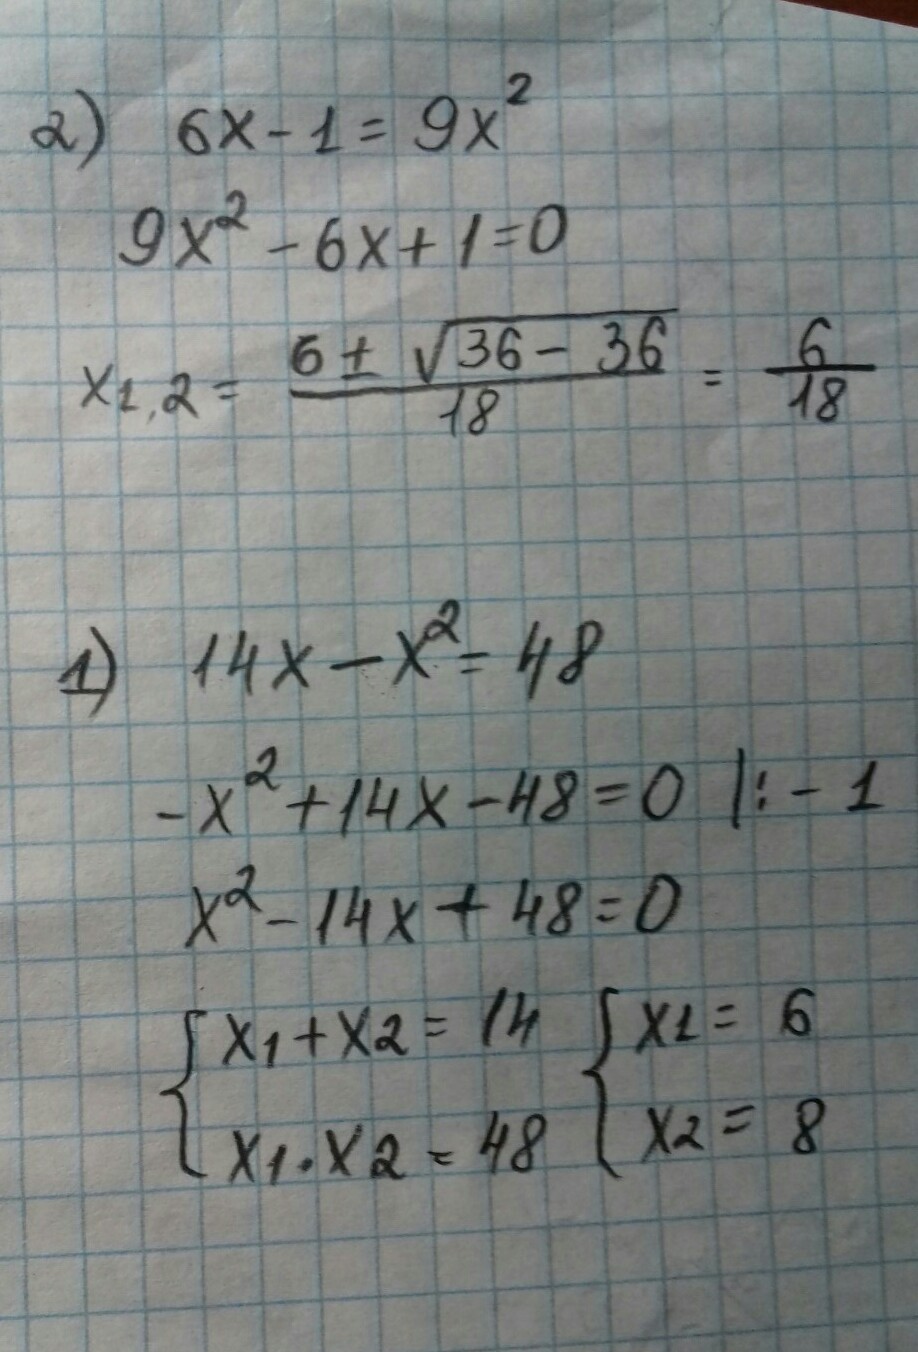 2) 6x - 1 = 9x²
9x² - 6x + 1 = 0
x₁,₂ = (6 ± √(36 - 36))/18 = 6/18
1) 14x - x² = 48
-x² + 14x - 48 = 0 |: - 1
x² - 14x + 48 = 0
{ x₁ + x₂ = 14 { x₁ = 6
x₁ · x₂ = 48 x₂ = 8